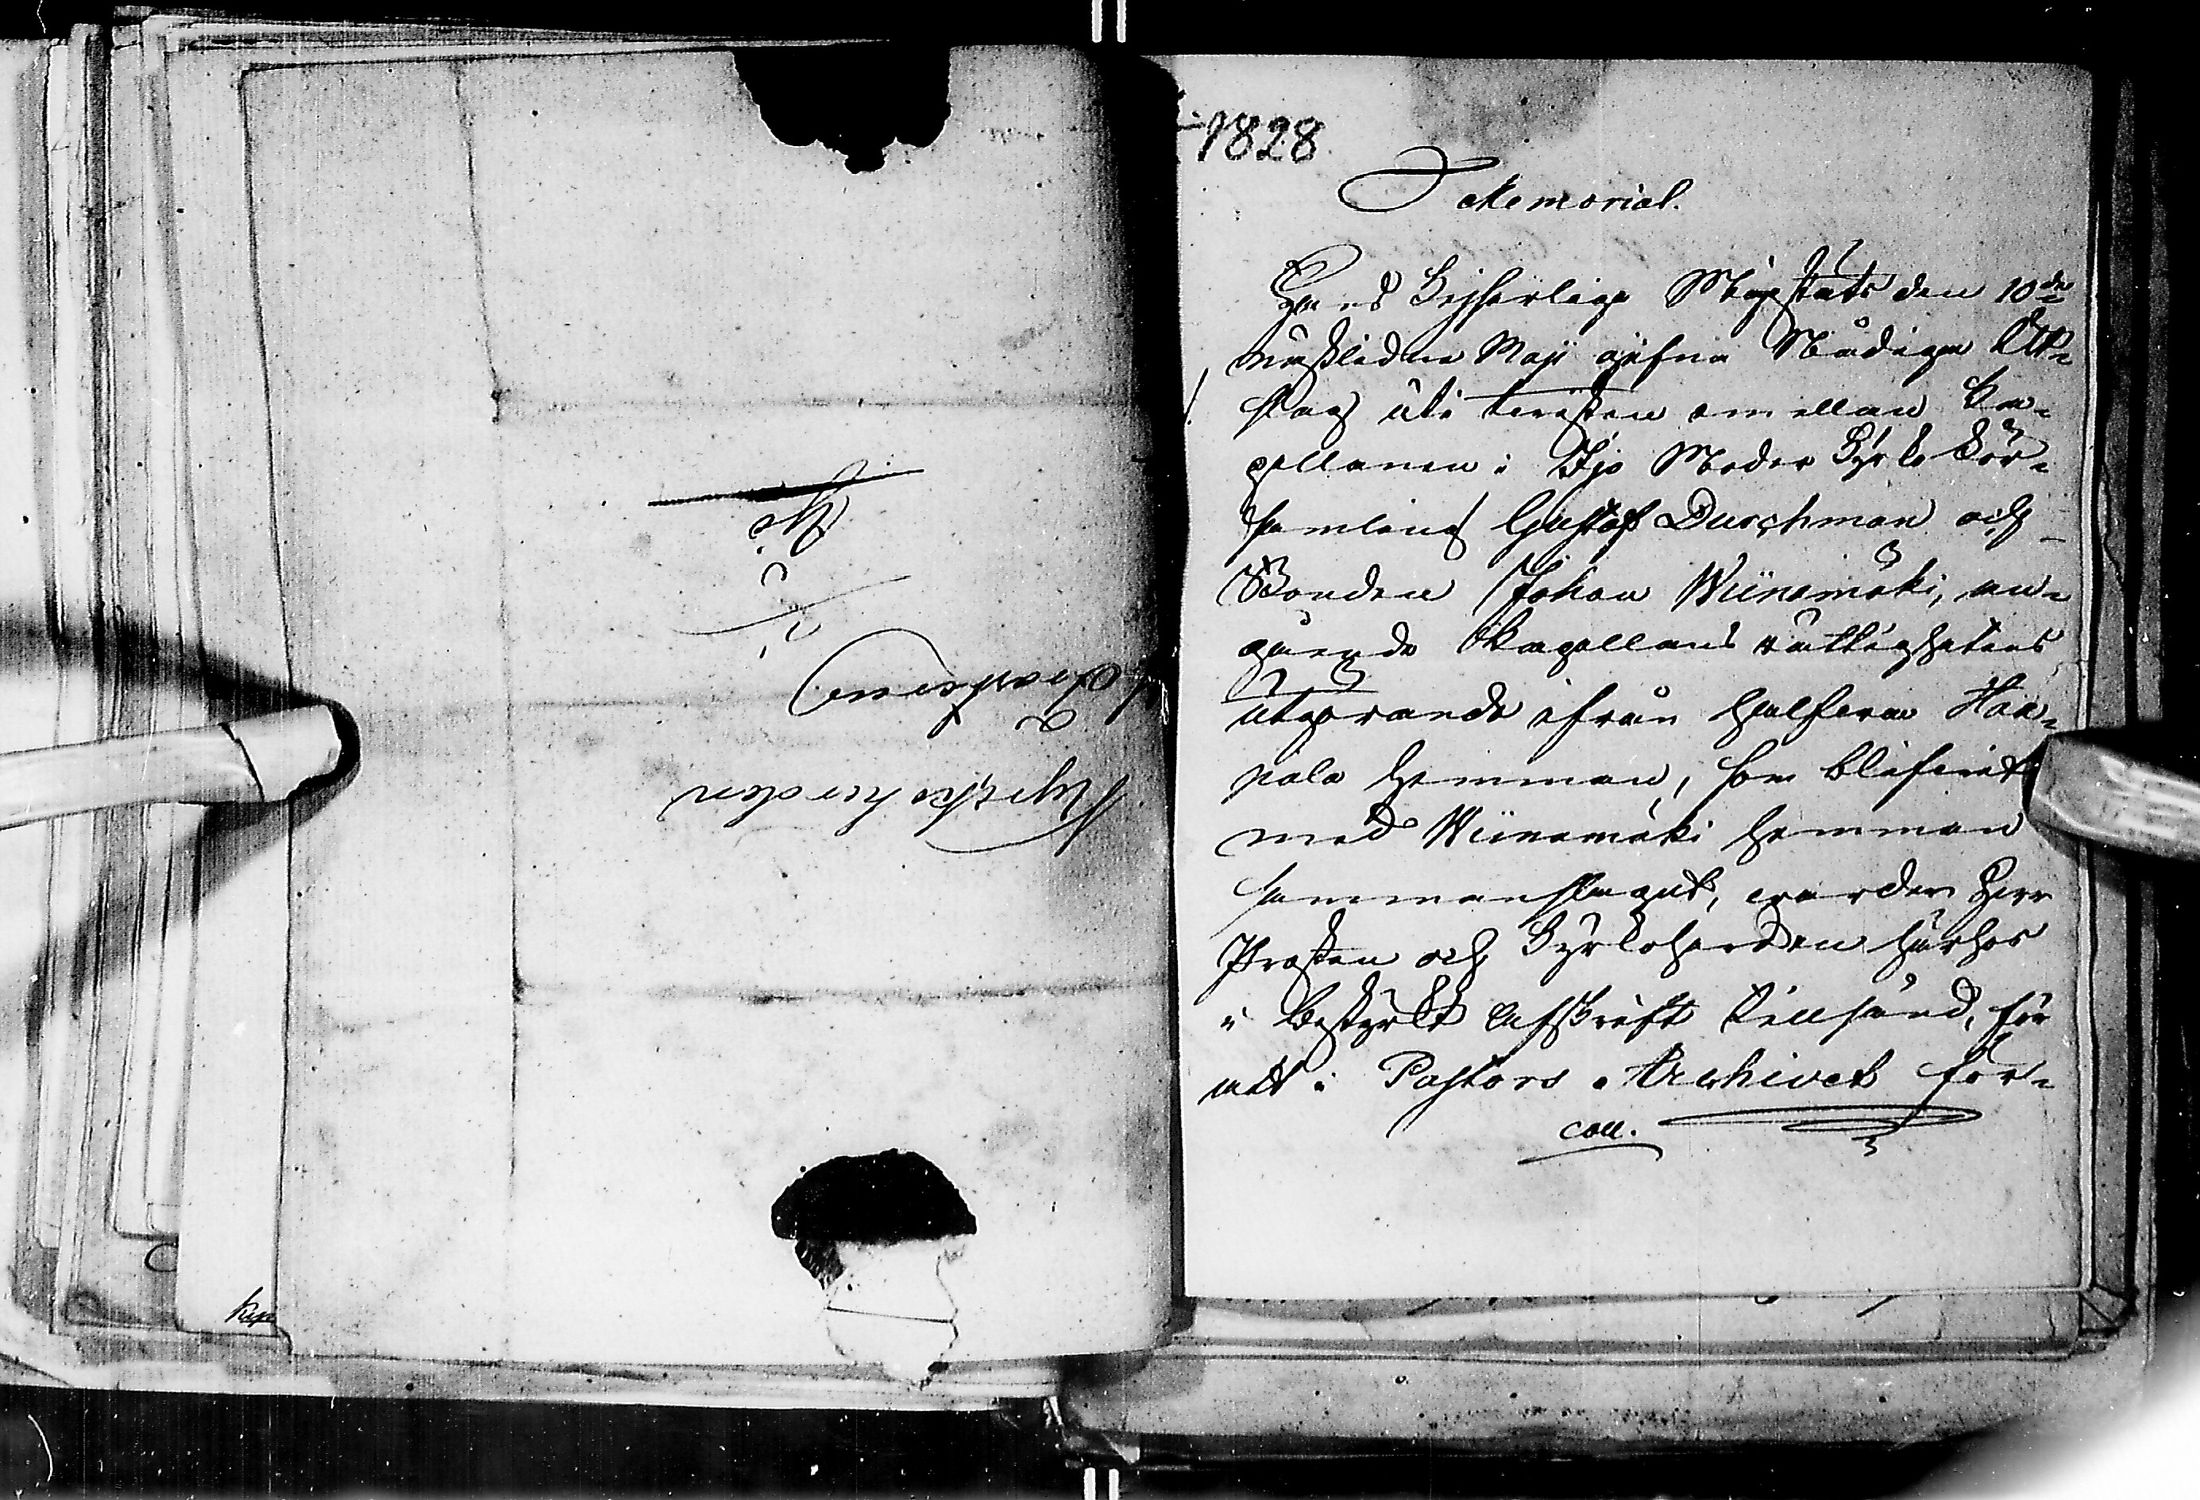 Kyrkoherden
i
Ijo
1828
Memorial.
Hans Kejserliga Majestäts den 10de
nästlidne Maji gifna Nådiga Ut-
slag uti tvisten emellan Ka-
pellanen i Ijo Moder Kyrko För-
samling Gustaf Duschman och
Bonden Johan Wiinamäki, an-
gående Kapellans rättighetens
utgörande ifrån halfva Haa-
pala hemman, som blifvit
med Wiinamäki hemman
sammanslaget, varder Herr
Prosten och Kyrkoherden härhos
i bestyrkt Afskrift tillsänd, för
att i Pastors Archivet för-
coll.